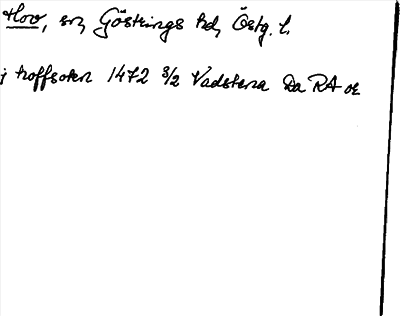 Hov, sn, Göstrings hd, Östg. l.
j hoffsokn 1472 3/2 Vadstena Da RA or